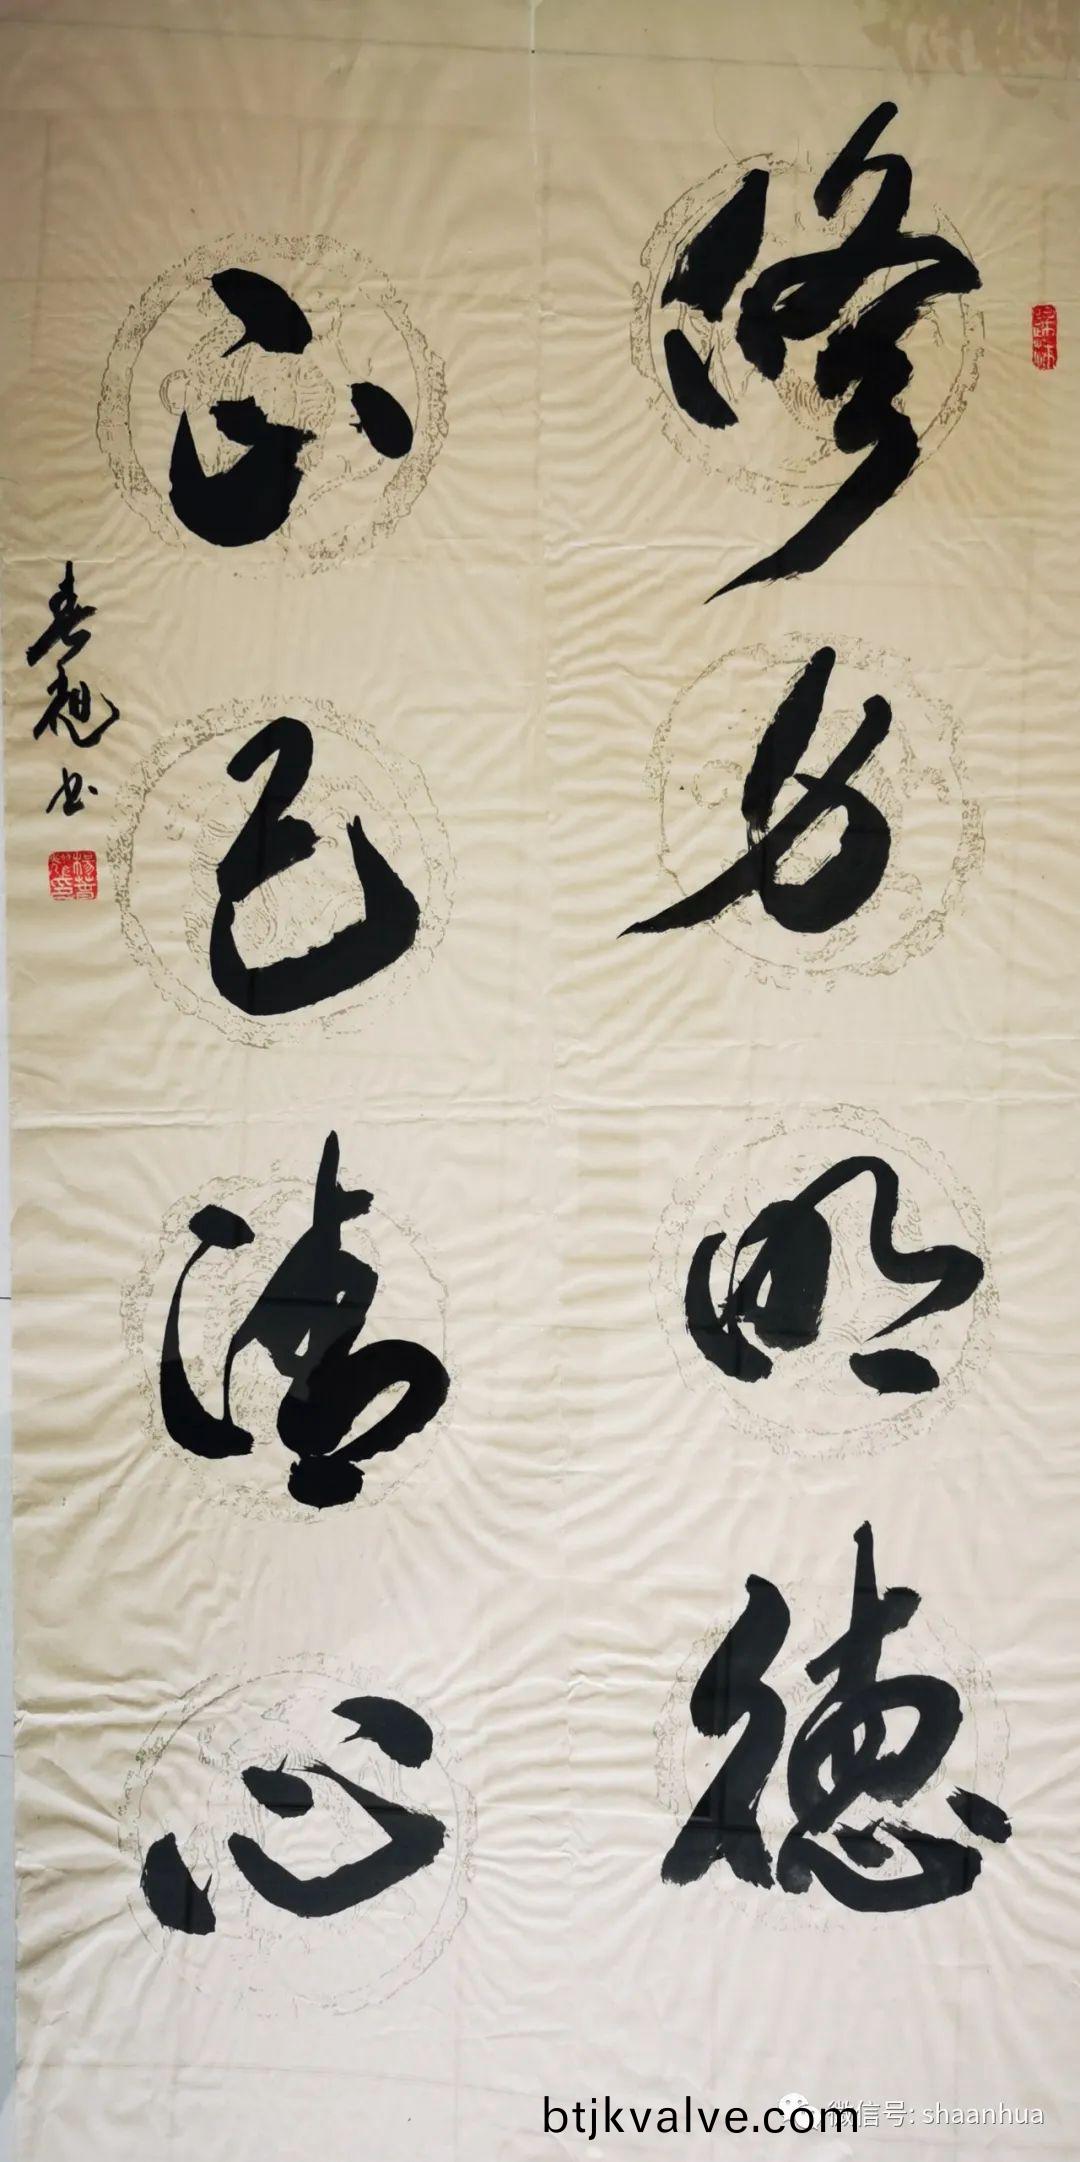 修身明德
正己清心
春 书
btjkvalve.com
微信号: shaanhua